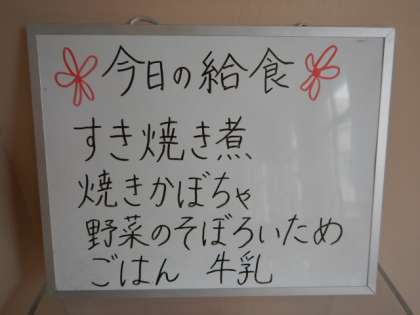 今日の給食
すき焼き煮
焼きかぼちゃ
野菜のそぼろいため
ごはん 牛乳